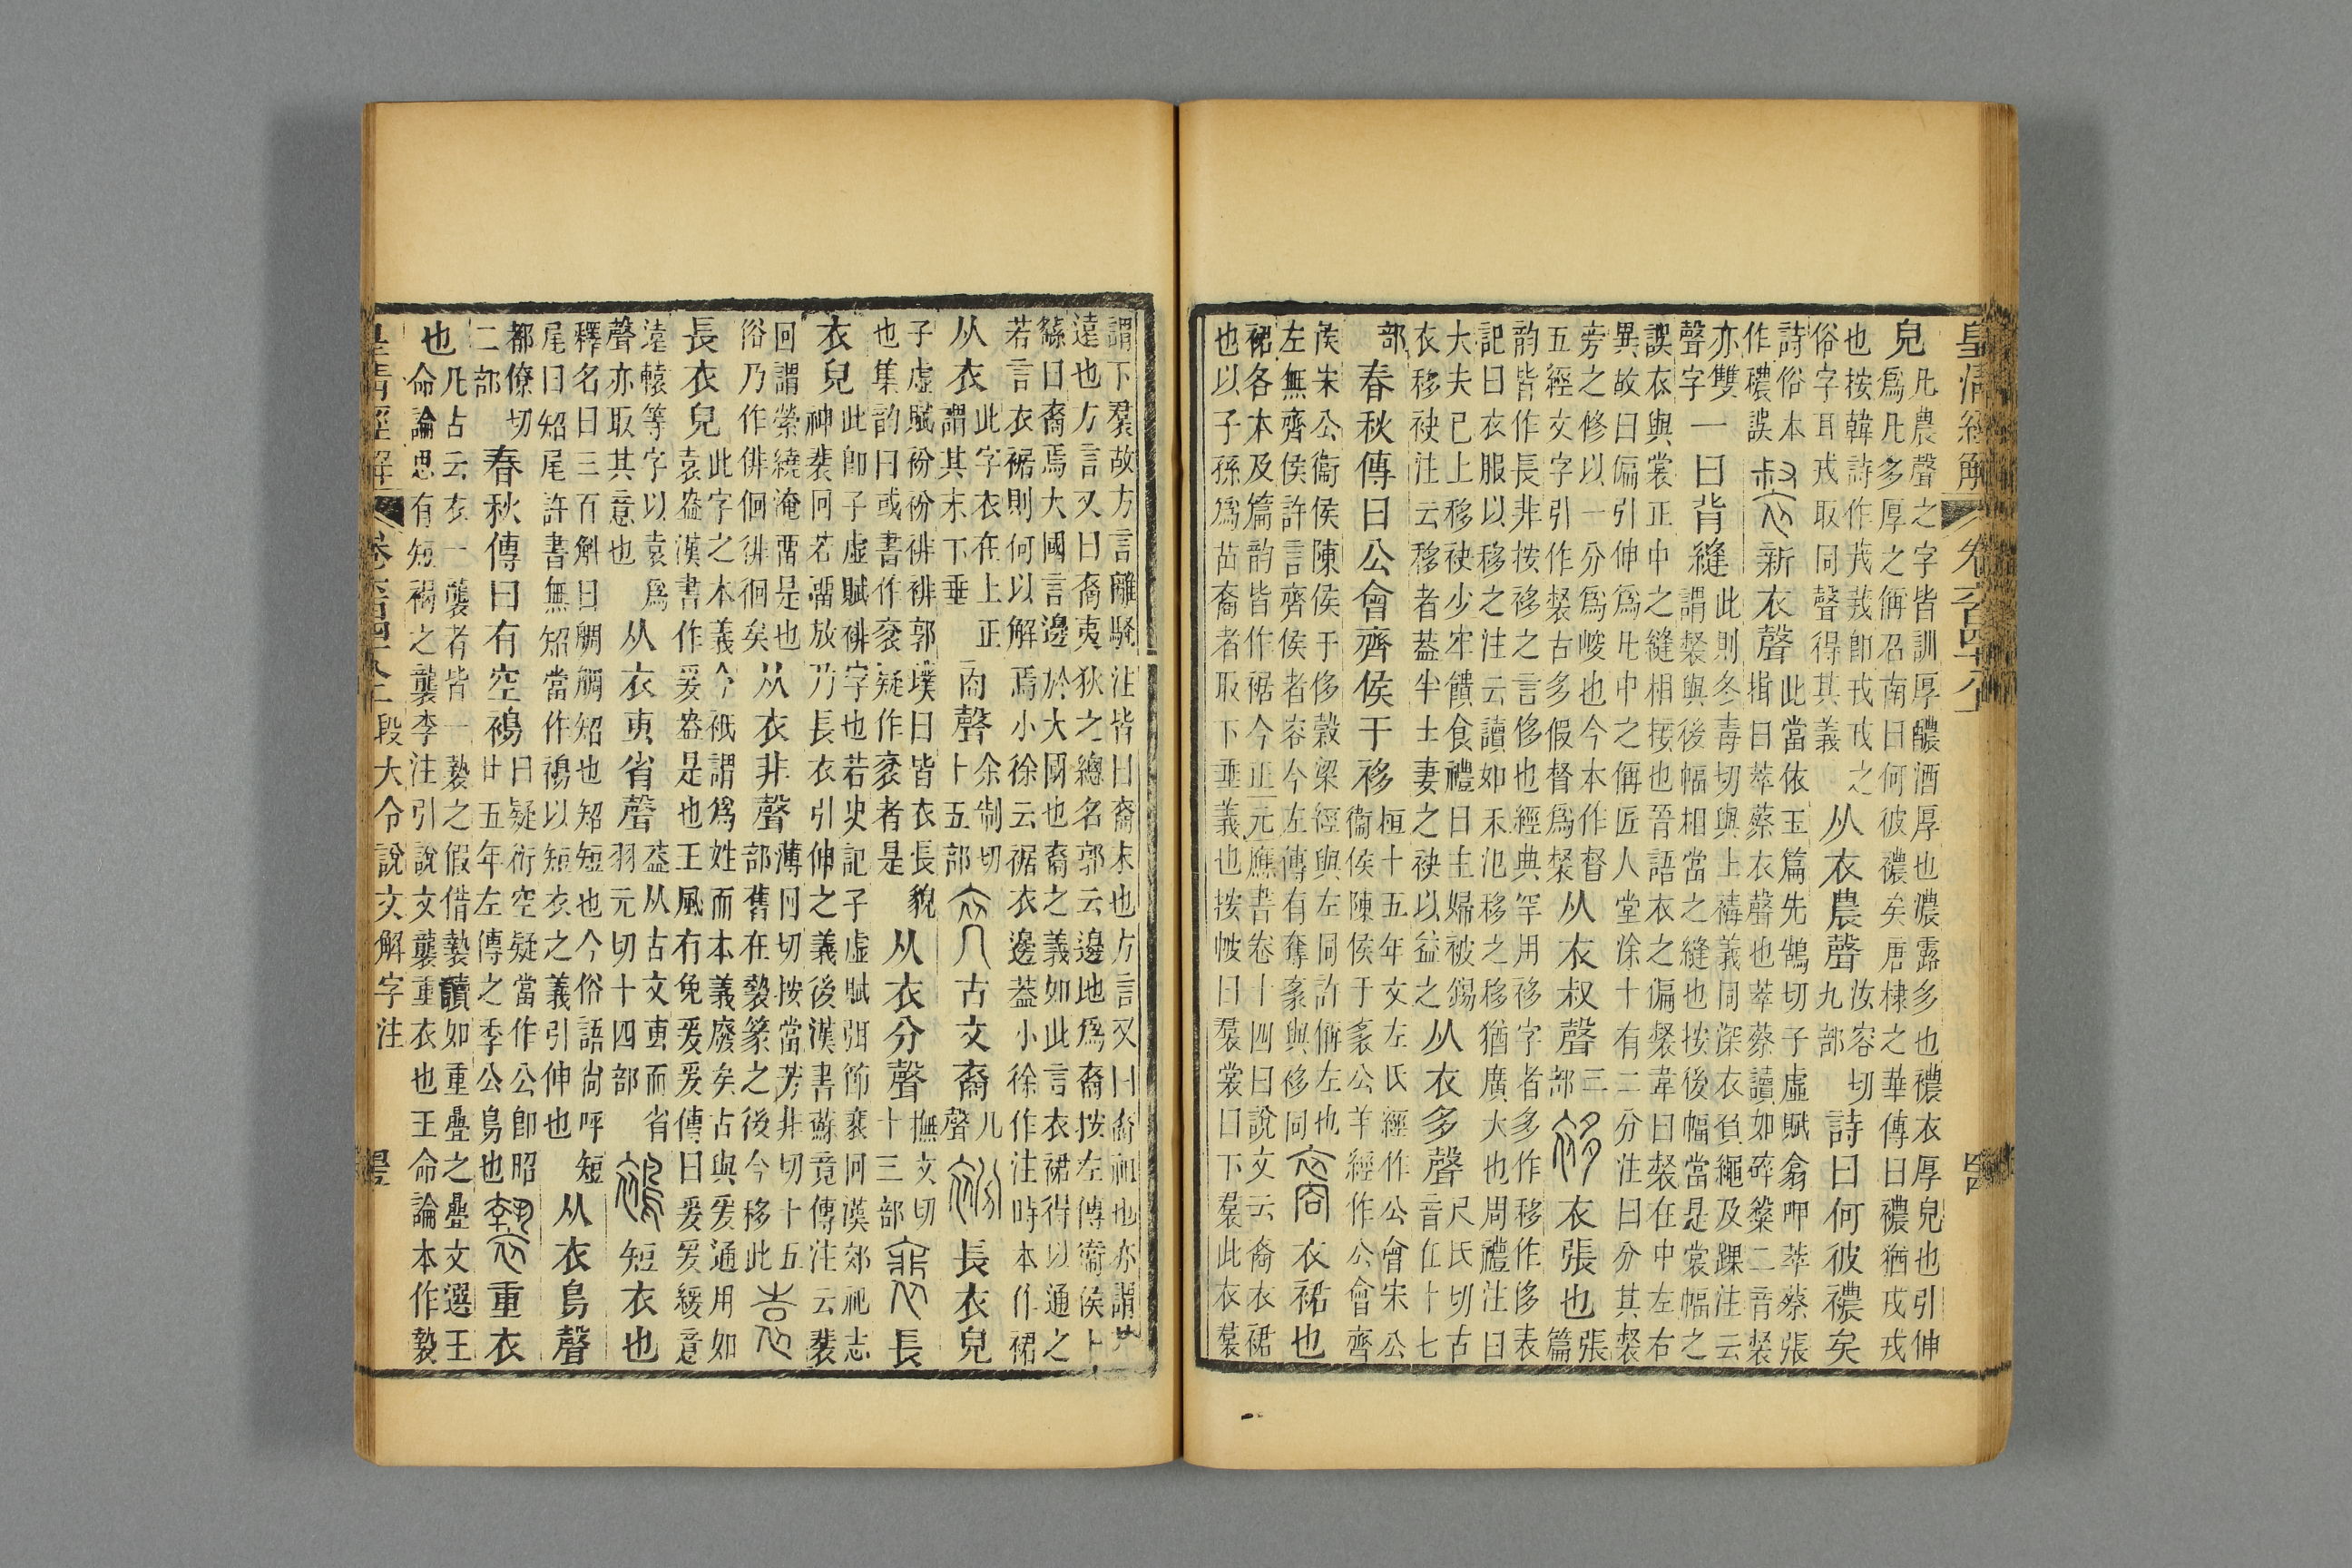 皇清經解 卷六百四十八上
皃凡農聲之字皆訓厚醲酒厚也濃露多也襛衣厚皃也引伸爲凡多厚之偁召南曰何彼襛矣唐棣之華傳曰襛猶戎戎
也按韓詩作茙茙卽戎戎之俗字耳戎取同聲得其義从衣農聲汝容切九部詩曰何彼襛矣
詩俗本作穠誤裻新衣聲此當依玉篇先鵠切子虛賦翕呷萃蔡張揖曰萃蔡衣聲也萃蔡讀如碎粲二音裻
亦雙聲字一曰背縫此則冬毒切與上襑義同深衣負繩及踝注云謂裻與後幅相當之縫也按後幅當是裳幅之
誤衣與裳正中之縫相接也晉語衣之偏裻韋曰裻在中左右異故曰偏引伸爲凡中之偁匠人堂涂十有二分注曰分其裻
旁之修以一分爲峻也今本作督五經文字引作裻古多假督爲裻从衣叔聲三部袳衣張也張篇
韵皆作長非按袳之言侈也經典罕用袳字者多作移作侈表記曰衣服以移之注云讀如禾氾移之移猶廣大也周禮注曰
大夫已上移袂少牢饋食禮曰主婦被錫衣移袂注云移者蓋半士妻之袂以益之从衣多聲尺氏切古音在十七
部春秋傳曰公會齊侯于袳桓十五年文左氏經作公會宋公衞侯陳侯于袲公羊經作公會齊
侯宋公衞侯陳侯于侈穀梁經與左同許偁左也左無齊侯許言齊侯者容今左傳有奪袲與袳同裔衣裙也
裙各本及篇韵皆作裾今正元應書卷十四曰說文云裔衣裙也以子孫爲苗裔者取下垂義也按帔曰帬裳曰下帬此衣帬
謂下帬故方言離騷注皆曰裔末也方言又曰裔祖也亦謂其遠也方言又曰裔夷狄之總名郭云邊地爲裔按左傳衞侯卜
繇曰裔焉大國言邊於大國也裔之義如此言衣裙得以通之若言衣裾則何以解焉小徐云裾衣邊蓋小徐作注時本作裙
从衣此字衣在上正謂其末下垂㕯聲余制切十五部𠆙古文裔几聲衯長衣皃
子虛賦衯衯裶裶郭璞曰皆衣長貌也集韵曰或書作衮疑作衮者是从衣分聲撫文切十三部裵長
衣皃此卽子虛賦裶字也若史記子虛賦弭節裵回漢郊祀志神裴回若畱放乃長衣引伸之義後漢書蘇竟傳注云裴
回謂縈繞淹畱是也俗乃作俳佪徘徊矣从衣非聲薄回切按當芳非切十五部舊在褺篆之後今移此袁
長衣皃此字之本義今衹謂爲姓而本義廢矣古與爰通用如袁盎漢書作爰盎是也王風有兔爰爰傳曰爰爰緩意
遠轅等字以袁爲聲亦取其意也从衣叀省聲蓋从古文叀而省羽元切十四部𧚨短衣也
釋名曰三百斛曰鯛鯛貂也貂短也今俗語尚呼短尾曰貂尾許書無貂當作𧚨以短衣之義引伸也从衣鳥聲
都僚切二部春秋傳曰有空𧚨曰疑衍空疑當作公卽昭廿五年左傳之季公鳥也褺重衣
也凡古云衣一襲者皆一褺之假借褺讀如重疊之疊文選王命論思有短褐之襲李注引說文襲重衣也王命論本作褺
皇清經解 卷六百四十八上 段大令說文解字注